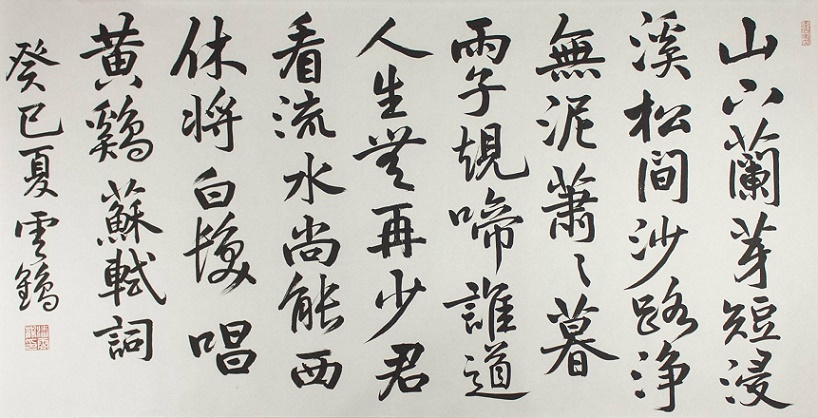 山下蘭芽短浸
溪松間沙路淨
無泥蕭々暮
雨子規啼誰道
人生無再少君
看流水尚能西
休將白髮唱
黃鷄蘇軾詞
癸巳夏雲鶴